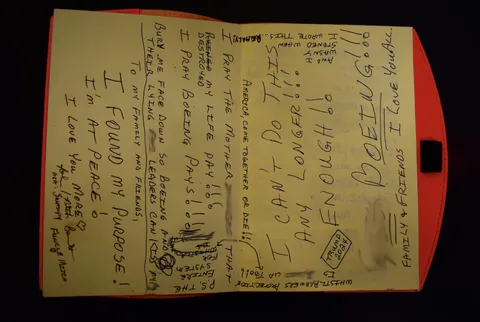 I CAN'T DO THIS
ANY LONGER!!!
ENOUGH!!
BOEING!!!
FAMILY & FRIENDS I LOVE YOU ALL.
TO MY FAMILY AND FRIENDS,
I FOUND MY PURPOSE!
I'M AT PEACE!
I LOVE YOU MORE
BURY ME FACE DOWN SO BOEING AND
THEIR LYING LEADERS CAN KISS MY
I PRAY THE MOTHER THAT
DESTROYED MY LIFE PAY!!!
I PRAY BOEING PAYS!!!
P.S. THE
ENTIRE
SYSTEM
FOR
WHISTLEBLOWERS PROTECTION
UP TOO!!
AMERICA, COME TOGETHER OR DIE!!
AND
I WASN'T
STONED WHEN
I WROTE THIS..
TRUMP
2024